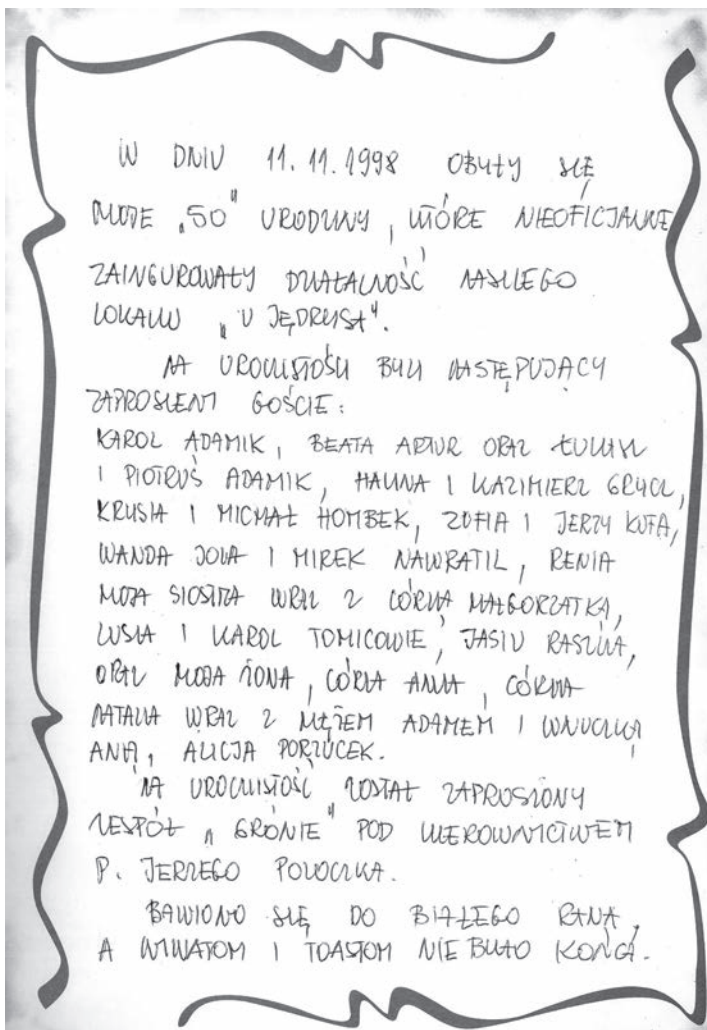 W DNIU 11.11.1998 OBYŁY SIĘ
MOJE „50" URODZINY, KTÓRE NIEOFICJALNIE
ZAINGUROWAŁY DZIAŁALNOŚĆ NASZEGO
LOKALU „U JĘDRYSA".
NA UROCZYSTOŚCI BYLI NASTĘPUJĄCY
ZAPROSZENI GOŚCIE:
KAROL ADAMIK, BEATA ARTUR ORAZ
I PIOTRUŚ ADAMIK, HALINA I KAZIMIERZ GRYCZ,
KRUSIA I MICHAŁ HOMBEK, ZOFIA I JERZY KUFA,
WANDA JOLA I MIREK NAWRATIL, RENIA
MOJA SIOSTRA WRAZ Z CÓRKĄ MAŁGORZATKĄ,
LUSIA I KAROL TOMICOWIE, JASIU RASZKA,
ORAZ MOJA ŻONA, CÓRKA ANNA, CÓRKA
NATALIA WRAZ Z MĘŻEM ADAMEM I WNUCZKĄ
ANIĄ, ALICJA PORZUCEK.
NA UROCZYSTOŚĆ ZOSTAŁ ZAPROSZONY
ZESPÓŁ „GRÓNIE" POD KIEROWNICTWEM
P. JERZEGO POLOCZKA.
BAWIONO SIĘ DO BIAŁEGO RANA,
A WIWATOM I TOASTOM NIE BYŁO KOŃCA.